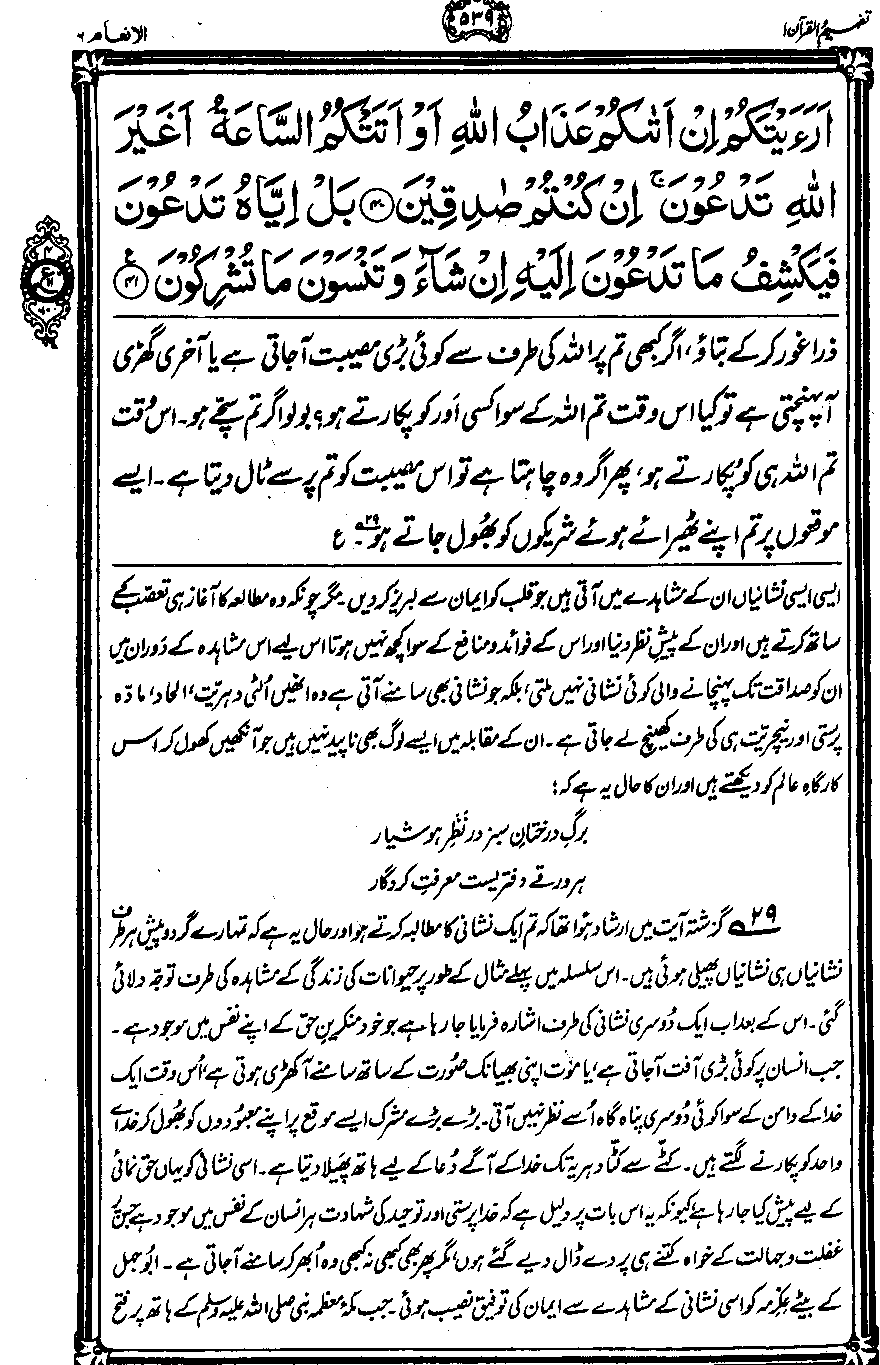 تفہیم القرآن ۱
۵۳۹
الانعام ۶
اَرَءَيْتَكُمْ اِنْ اَتٰىكُمْ عَذَابُ اللّٰهِ اَوْ اَتَتْكُمُ السَّاعَةُ اَغَيْرَ
اللّٰهِ تَدْعُوْنَ ۚ اِنْ كُنْتُمْ صٰدِقِيْنَ ﴿۴۰﴾ بَلْ اِيَّاهُ تَدْعُوْنَ
فَيَكْشِفُ مَا تَدْعُوْنَ اِلَيْهِ اِنْ شَآءَ وَ تَنْسَوْنَ مَا تُشْرِكُوْنَ ﴿۴۱﴾ ع
ذرا غور کر کے بتاؤ، اگر کبھی تم پر اللہ کی طرف سے کوئی بڑی مصیبت آجاتی ہے یا آخری گھڑی
آپہنچتی ہے تو کیا اس وقت تم اللہ کے سوا کسی اَور کو پکارتے ہو؟ بولو اگر تم سچّے ہو۔ اس وقت
تم اللہ ہی کو پُکارتے ہو، پھر اگر وہ چاہتا ہے تو اس مصیبت کو تم پر سے ٹال دیتا ہے۔ ایسے
موقعوں پر تم اپنے ٹھیرائے ہوئے شریکوں کو بھُول جاتے ہو۔ ۲۹ ع
ایسی ایسی نشانیاں ان کے مشاہدے میں آتی ہیں جو قلب کو ایمان سے لبریز کر دیں۔ مگر چونکہ وہ مطالعہ کا آغاز ہی تعصّب کے
ساتھ کرتے ہیں اور ان کے پیشِ نظر دنیا اور اس کے فوائد و منافع کے سوا کچھ نہیں ہوتا اس لیے اس مشاہدہ کے دَوران میں
ان کو صداقت تک پہنچانے والی کوئی نشانی نہیں ملتی، بلکہ جو نشانی بھی سامنے آتی ہے وہ انھیں اُلٹی دہریّت، الحاد، مادّہ
پرستی اور نیچریّت ہی کی طرف کھینچ لے جاتی ہے۔ ان کے مقابلہ میں ایسے لوگ بھی ناپید نہیں ہیں جو آنکھیں کھول کر اس
کارگاہِ عالم کو دیکھتے ہیں اور ان کا حال یہ ہے کہ:
برگِ درختانِ سبز در نَظَرِ ہوشیار
ہر ورقے دفتریست معرفتِ کردگار
۲۹ گزشتہ آیت میں ارشاد ہوا تھا کہ تم ایک نشانی کا مطالبہ کرتے ہو اور حال یہ ہے کہ تمہارے گردو پیش ہر طرف
نشانیاں ہی نشانیاں پھیلی ہوئی ہیں۔ اس سلسلہ میں پہلے مثال کے طور پر حیوانات کی زندگی کے مشاہدہ کی طرف توجّہ دلائی
گئی۔ اس کے بعد اب ایک دُوسری نشانی کی طرف اشارہ فرمایا جا رہا ہے جو خود منکرینِ حق کے اپنے نفس میں موجود ہے۔
جب انسان پر کوئی بڑی آفت آجاتی ہے، یا مَوت اپنی بھیانک صُورت کے ساتھ سامنے آ کھڑی ہوتی ہے، اُس وقت ایک
خدا کے دامن کے سوا کوئی دُوسری پناہ گاہ اُسے نظر نہیں آتی۔ بڑے بڑے مشرک ایسے موقع پر اپنے معبُودوں کو بھُول کر خدائے
واحد کو پکارنے لگتے ہیں۔ کٹّے سے کٹّا دہریہ تک خدا کے آگے دُعا کے لیے ہاتھ پھیلا دیتا ہے۔ اسی نشانی کو یہاں حق نمائی
کے لیے پیش کیا جا رہا ہے، کیونکہ یہ اس بات پر دلیل ہے کہ خدا پرستی اور توحید کی شہادت ہر انسان کے نفس میں موجود ہے جس پر
غفلت و جہالت کے خواہ کتنے ہی پردے ڈال دیے گئے ہوں، مگر پھر بھی کبھی نہ کبھی وہ اُبھر کر سامنے آجاتی ہے۔ ابُوجہل
کے بیٹے عِکْرِمہ کو اسی نشانی کے مشاہدے سے ایمان کی توفیق نصیب ہوئی۔ جب مکّۂ معظمہ نبی صلی اللہ علیہ وسلم کے ہاتھ پر فتح